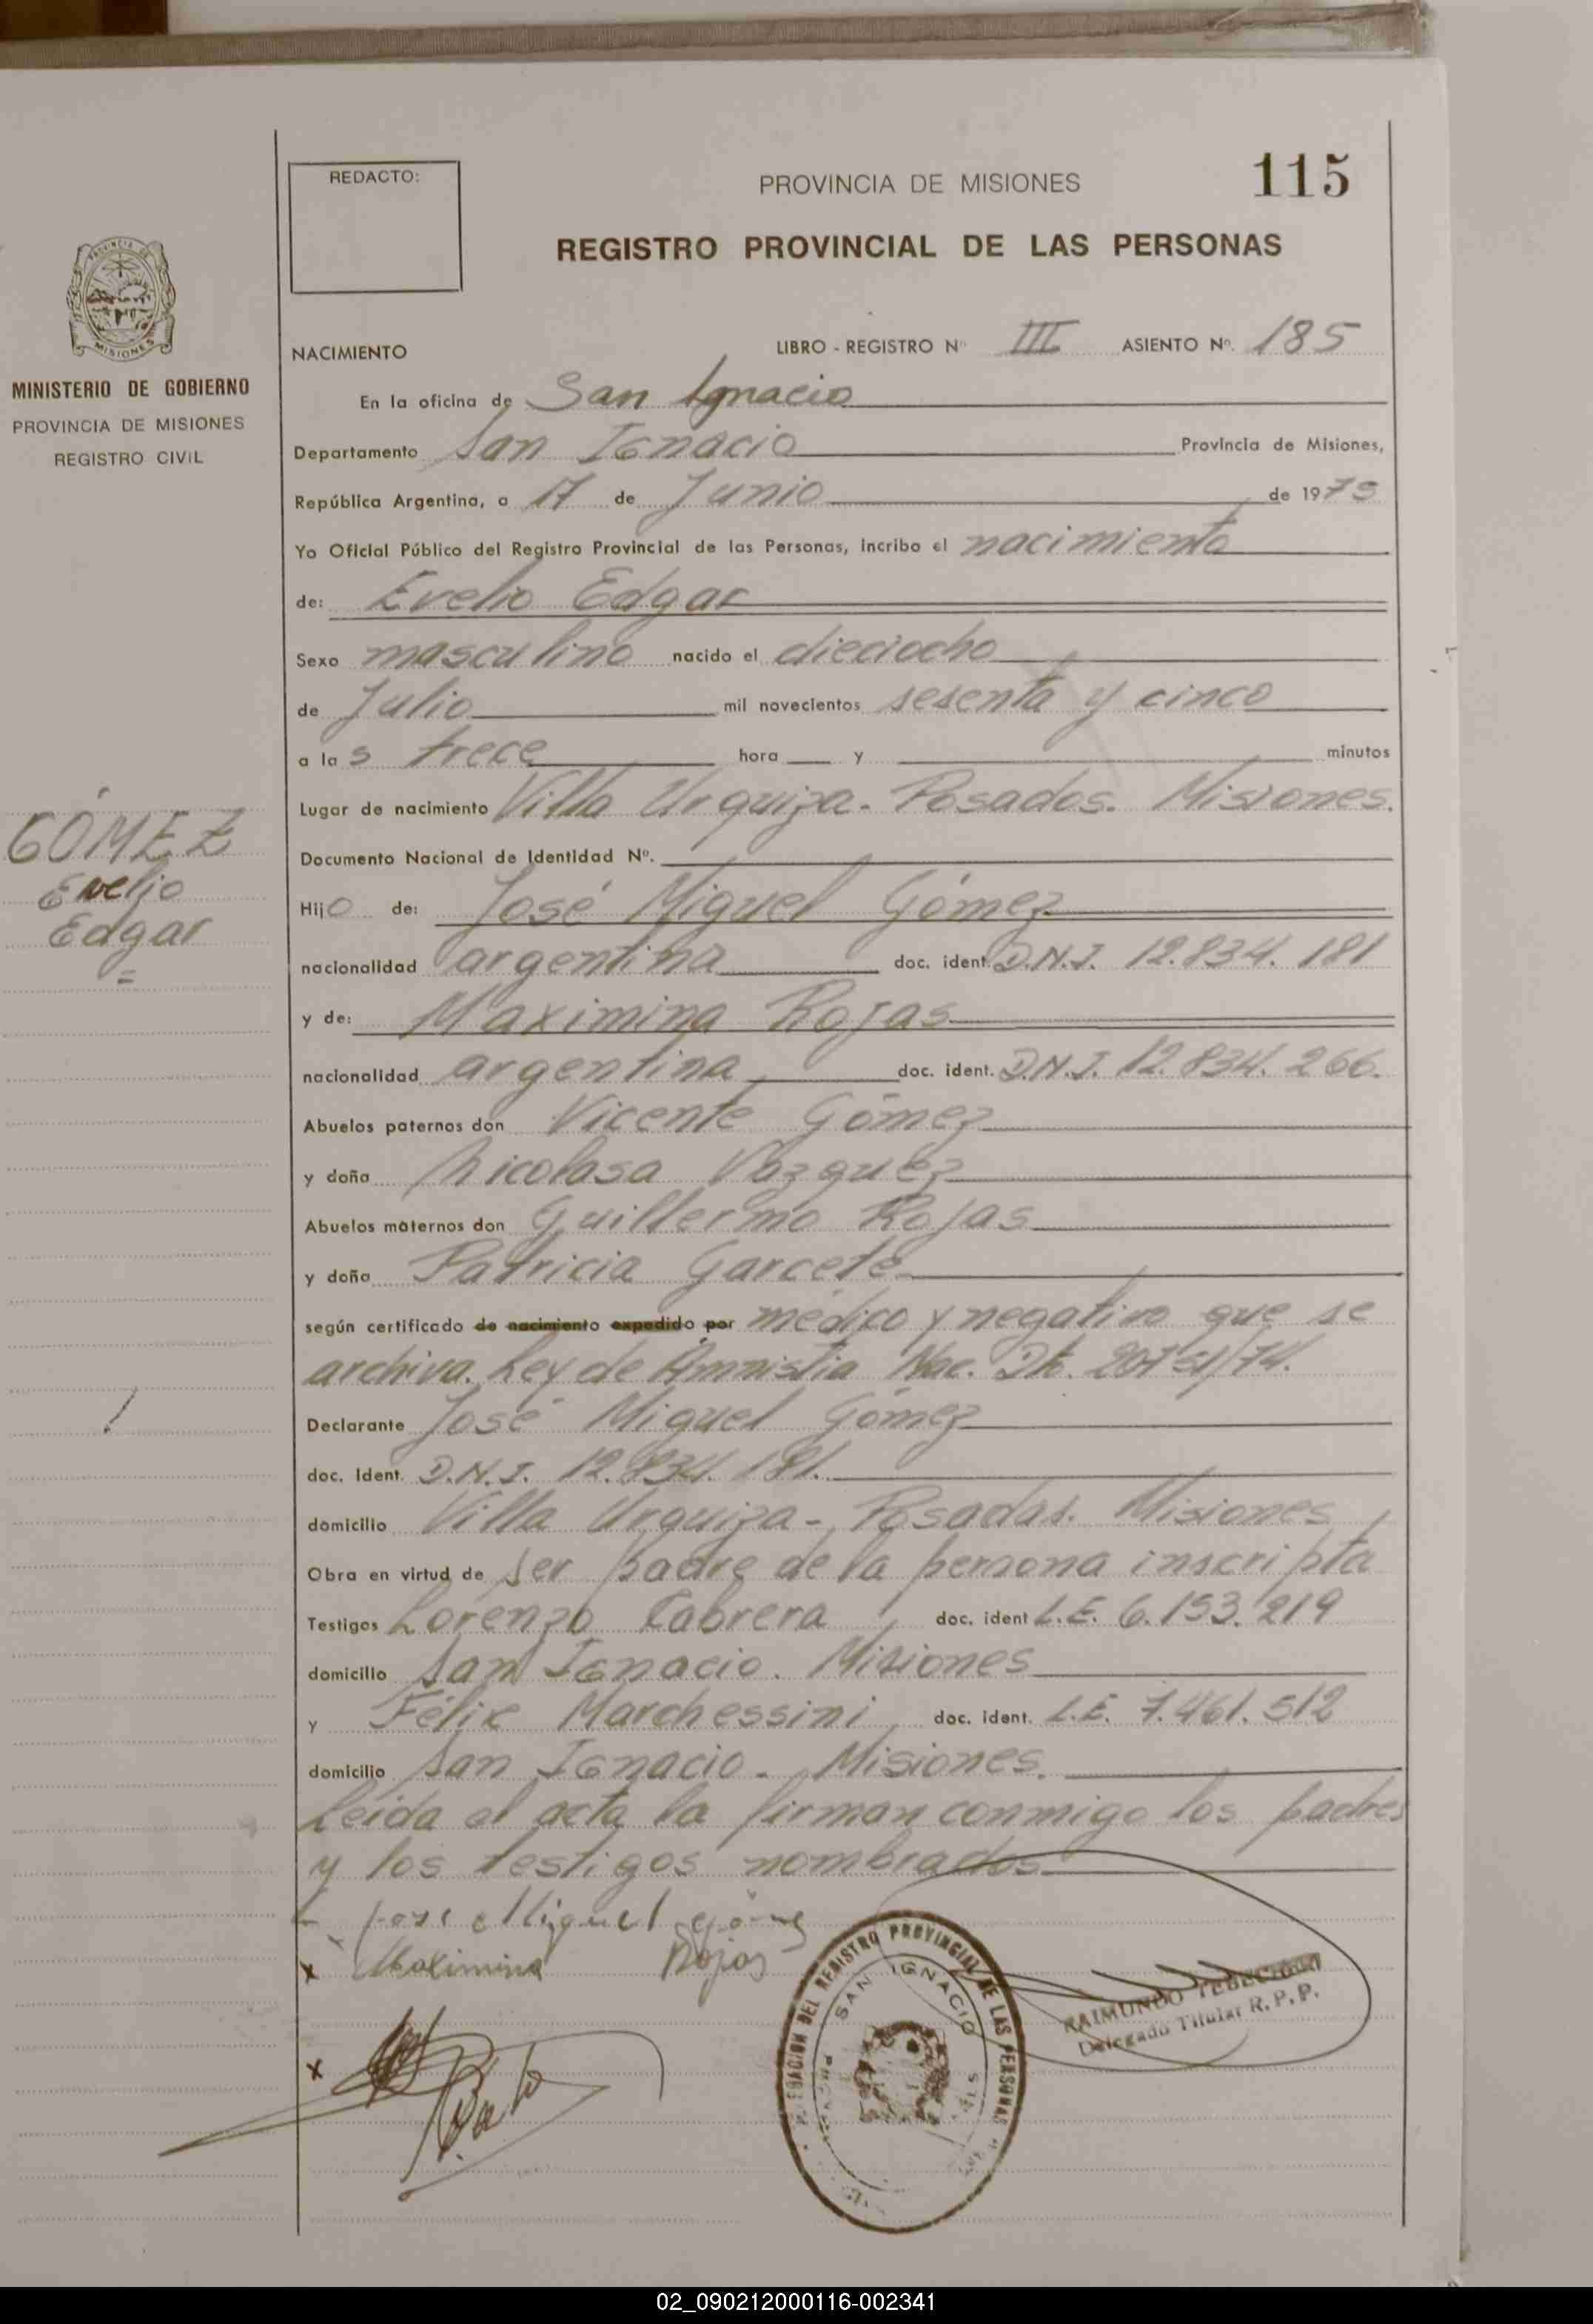 REDACTO:
PROVINCIA DE MISIONES
115
REGISTRO PROVINCIAL DE LAS PERSONAS
PROVINCIA DE
MISIONES
MINISTERIO DE GOBIERNO
PROVINCIA DE MISIONES
REGISTRO CIVIL
NACIMIENTO LIBRO - REGISTRO Nº III ASIENTO Nº. 185
En la oficina de San Ignacio
Departamento San Ignacio Provincia de Misiones,
República Argentina, a 17 de Junio de 1975
Yo Oficial Público del Registro Provincial de las Personas, incribo el nacimiento
de: Evelio Edgar
Sexo masculino nacido el dieciocho
de Julio mil novecientos sesenta y cinco
a las trece hora y minutos
Lugar de nacimiento Villa Urquiza - Posadas. Misiones.
GÓMEZ
Evelio
Edgar
=
Documento Nacional de Identidad Nº.
Hijo de: José Miguel Gómez
nacionalidad argentina doc. ident. D.N.I. 12.834.181
y de: Maximina Rojas
nacionalidad argentina doc. ident. D.N.I. 12.834.266.
Abuelos paternos don Vicente Gómez
y doña Nicolasa Vazquez
Abuelos maternos don Guillermo Rojas
y doña Patricia Garcete
según certificado de nacimiento expedido por médico y negativo que se
archiva. Ley de Amnistia Nac. 20751/74.
Declarante José Miguel Gómez
doc. ident. D.N.I. 12.834.181.
domicilio Villa Urquiza - Posadas. Misiones
Obra en virtud de ser padre de la persona inscripta
Testigos Lorenzo Cabrera, doc. ident L.E. 6.153.219
domicilio San Ignacio. Misiones
y Félix Marchessini, doc. ident. L.E. 7.461.512
domicilio San Ignacio - Misiones.
Leida el acta la firman conmigo los padres
y los testigos nombrados.
Jose Miguel Gómez
x Maximina Rojas
x
DELEGACION DEL REGISTRO PROVINCIAL DE LAS PERSONAS
SAN IGNACIO
RAIMUNDO
Delegado Titular R.P.P.
02_090212000116-002341